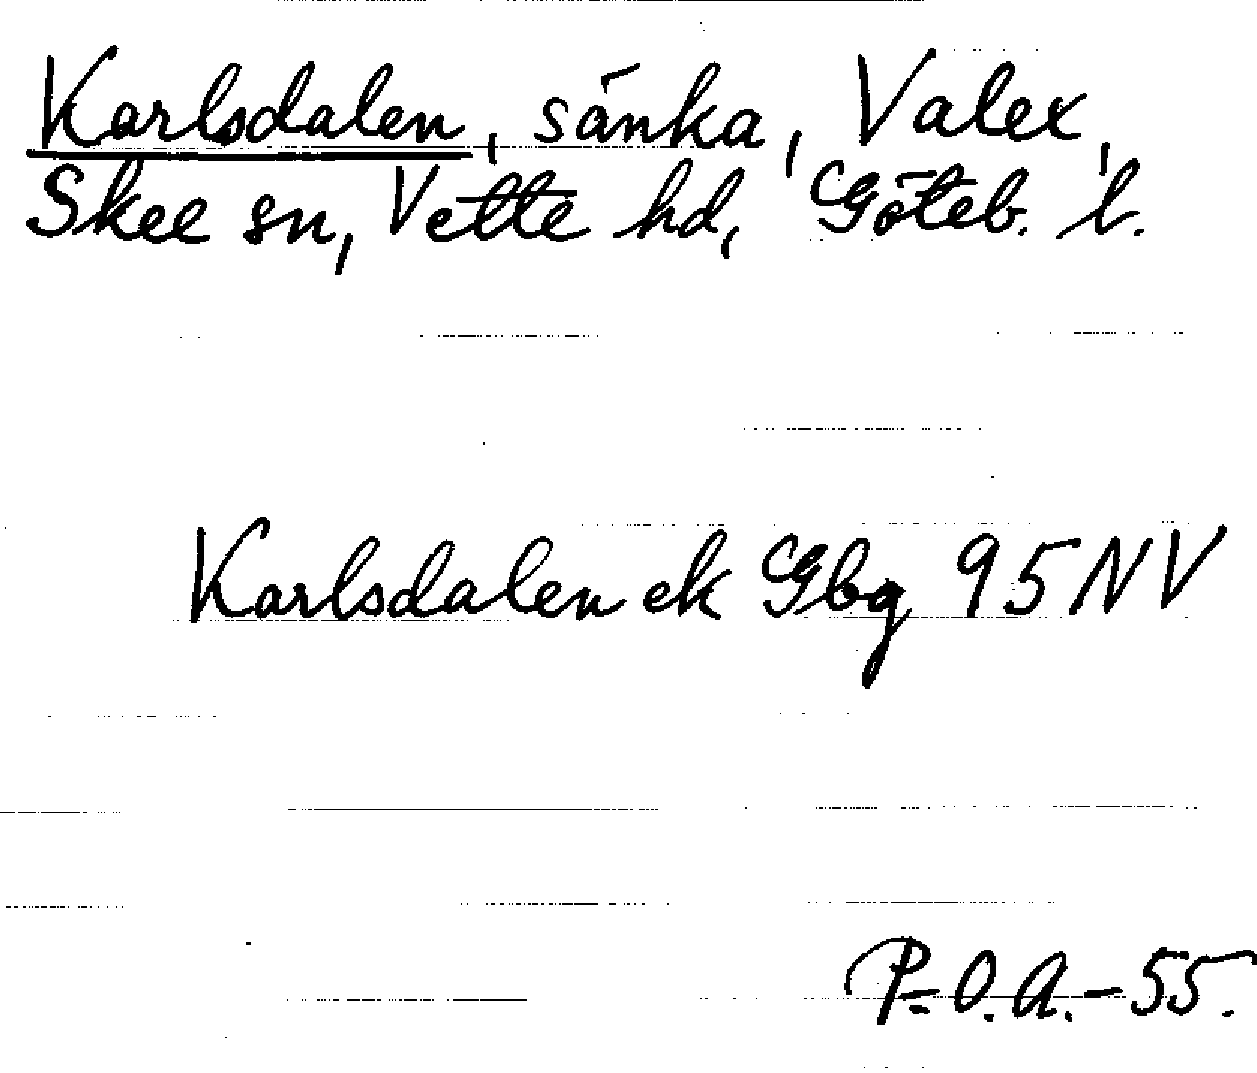 Karlsdalen, sänka, Valex,
Skee sn, Vette hd, Göteb. l.
Karlsdalen ek Gbg 95 NV
P-O.A.-55.